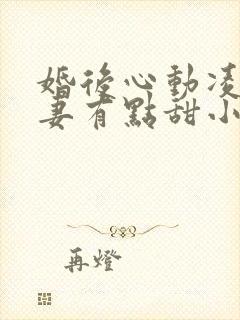 婚後心動凌
妻有點甜小
再燈